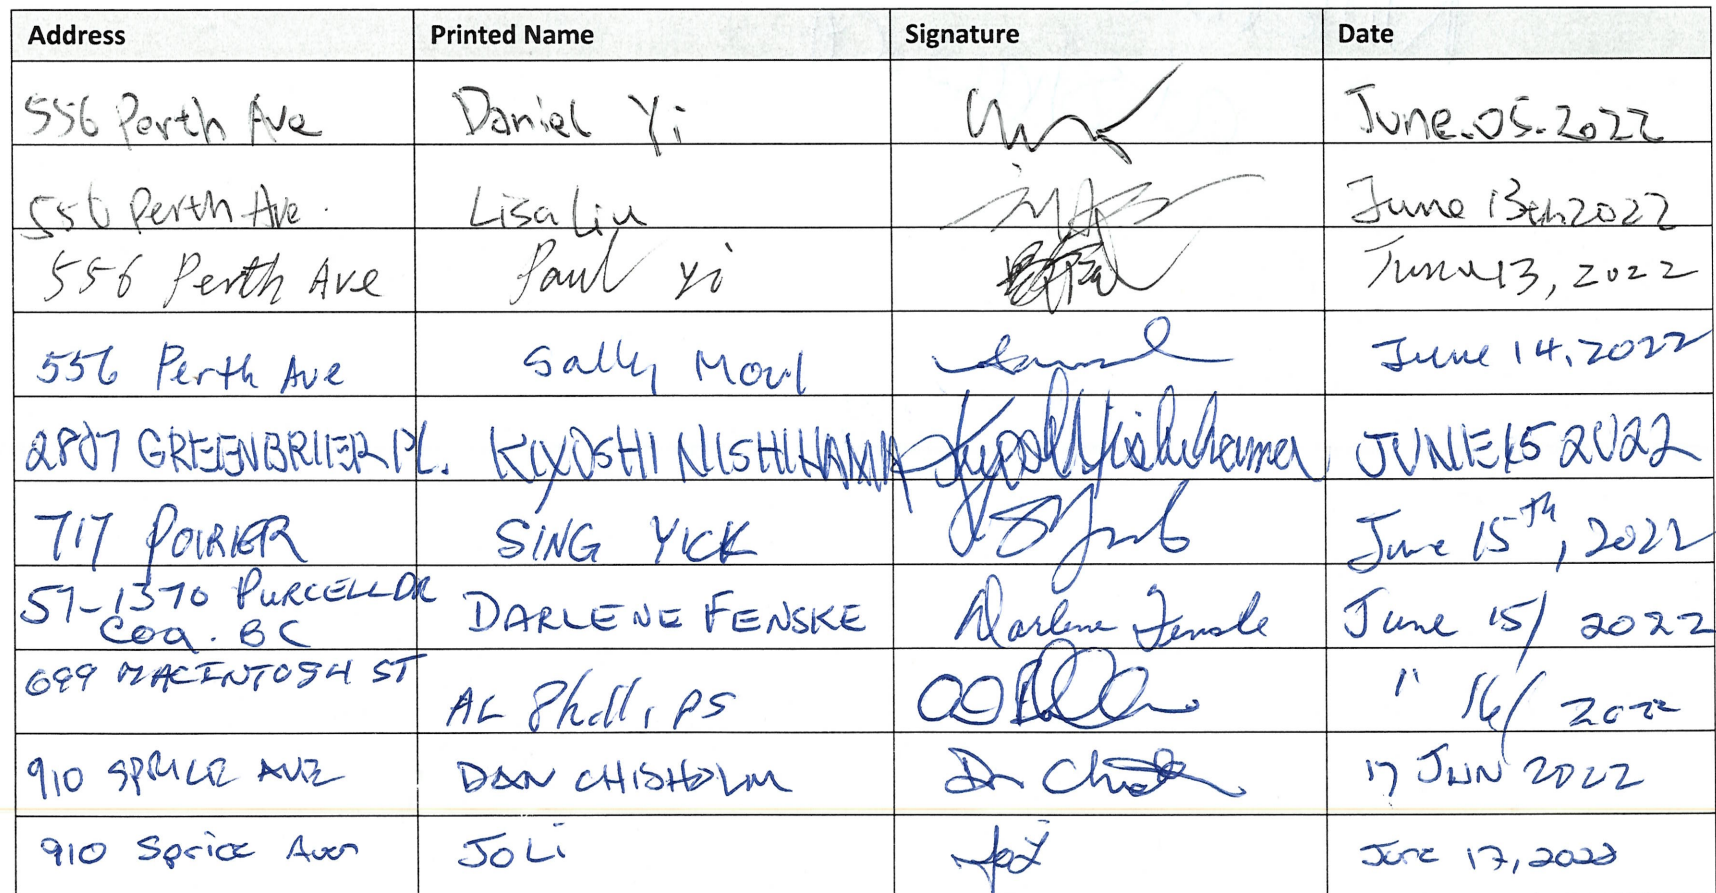 Address Printed Name Signature Date
556 Perth Ave Daniel Yi June.05.2022
556 Perth Ave. Lisa Liu June 13th 2022
556 Perth Ave Paul Yi June 13, 2022
556 Perth Ave Sally Moul June 14, 2022
2807 GREENBRIER PL. KIYOSHI NISHIHAMA Kiyoshi Nishihama JUNE 15 2022
717 POIRIER SING YICK June 15th, 2022
57-1370 PURCELL DR DARLENE FENSKE Darlene Fenske June 15/ 2022
COQ. BC
699 MACINTOSH ST AL Phillips " 16/ 2022
910 SPRUCE AVE DAN CHISHOLM 17 JUN 2022
910 Spruce Ave JO Li June 17, 2022